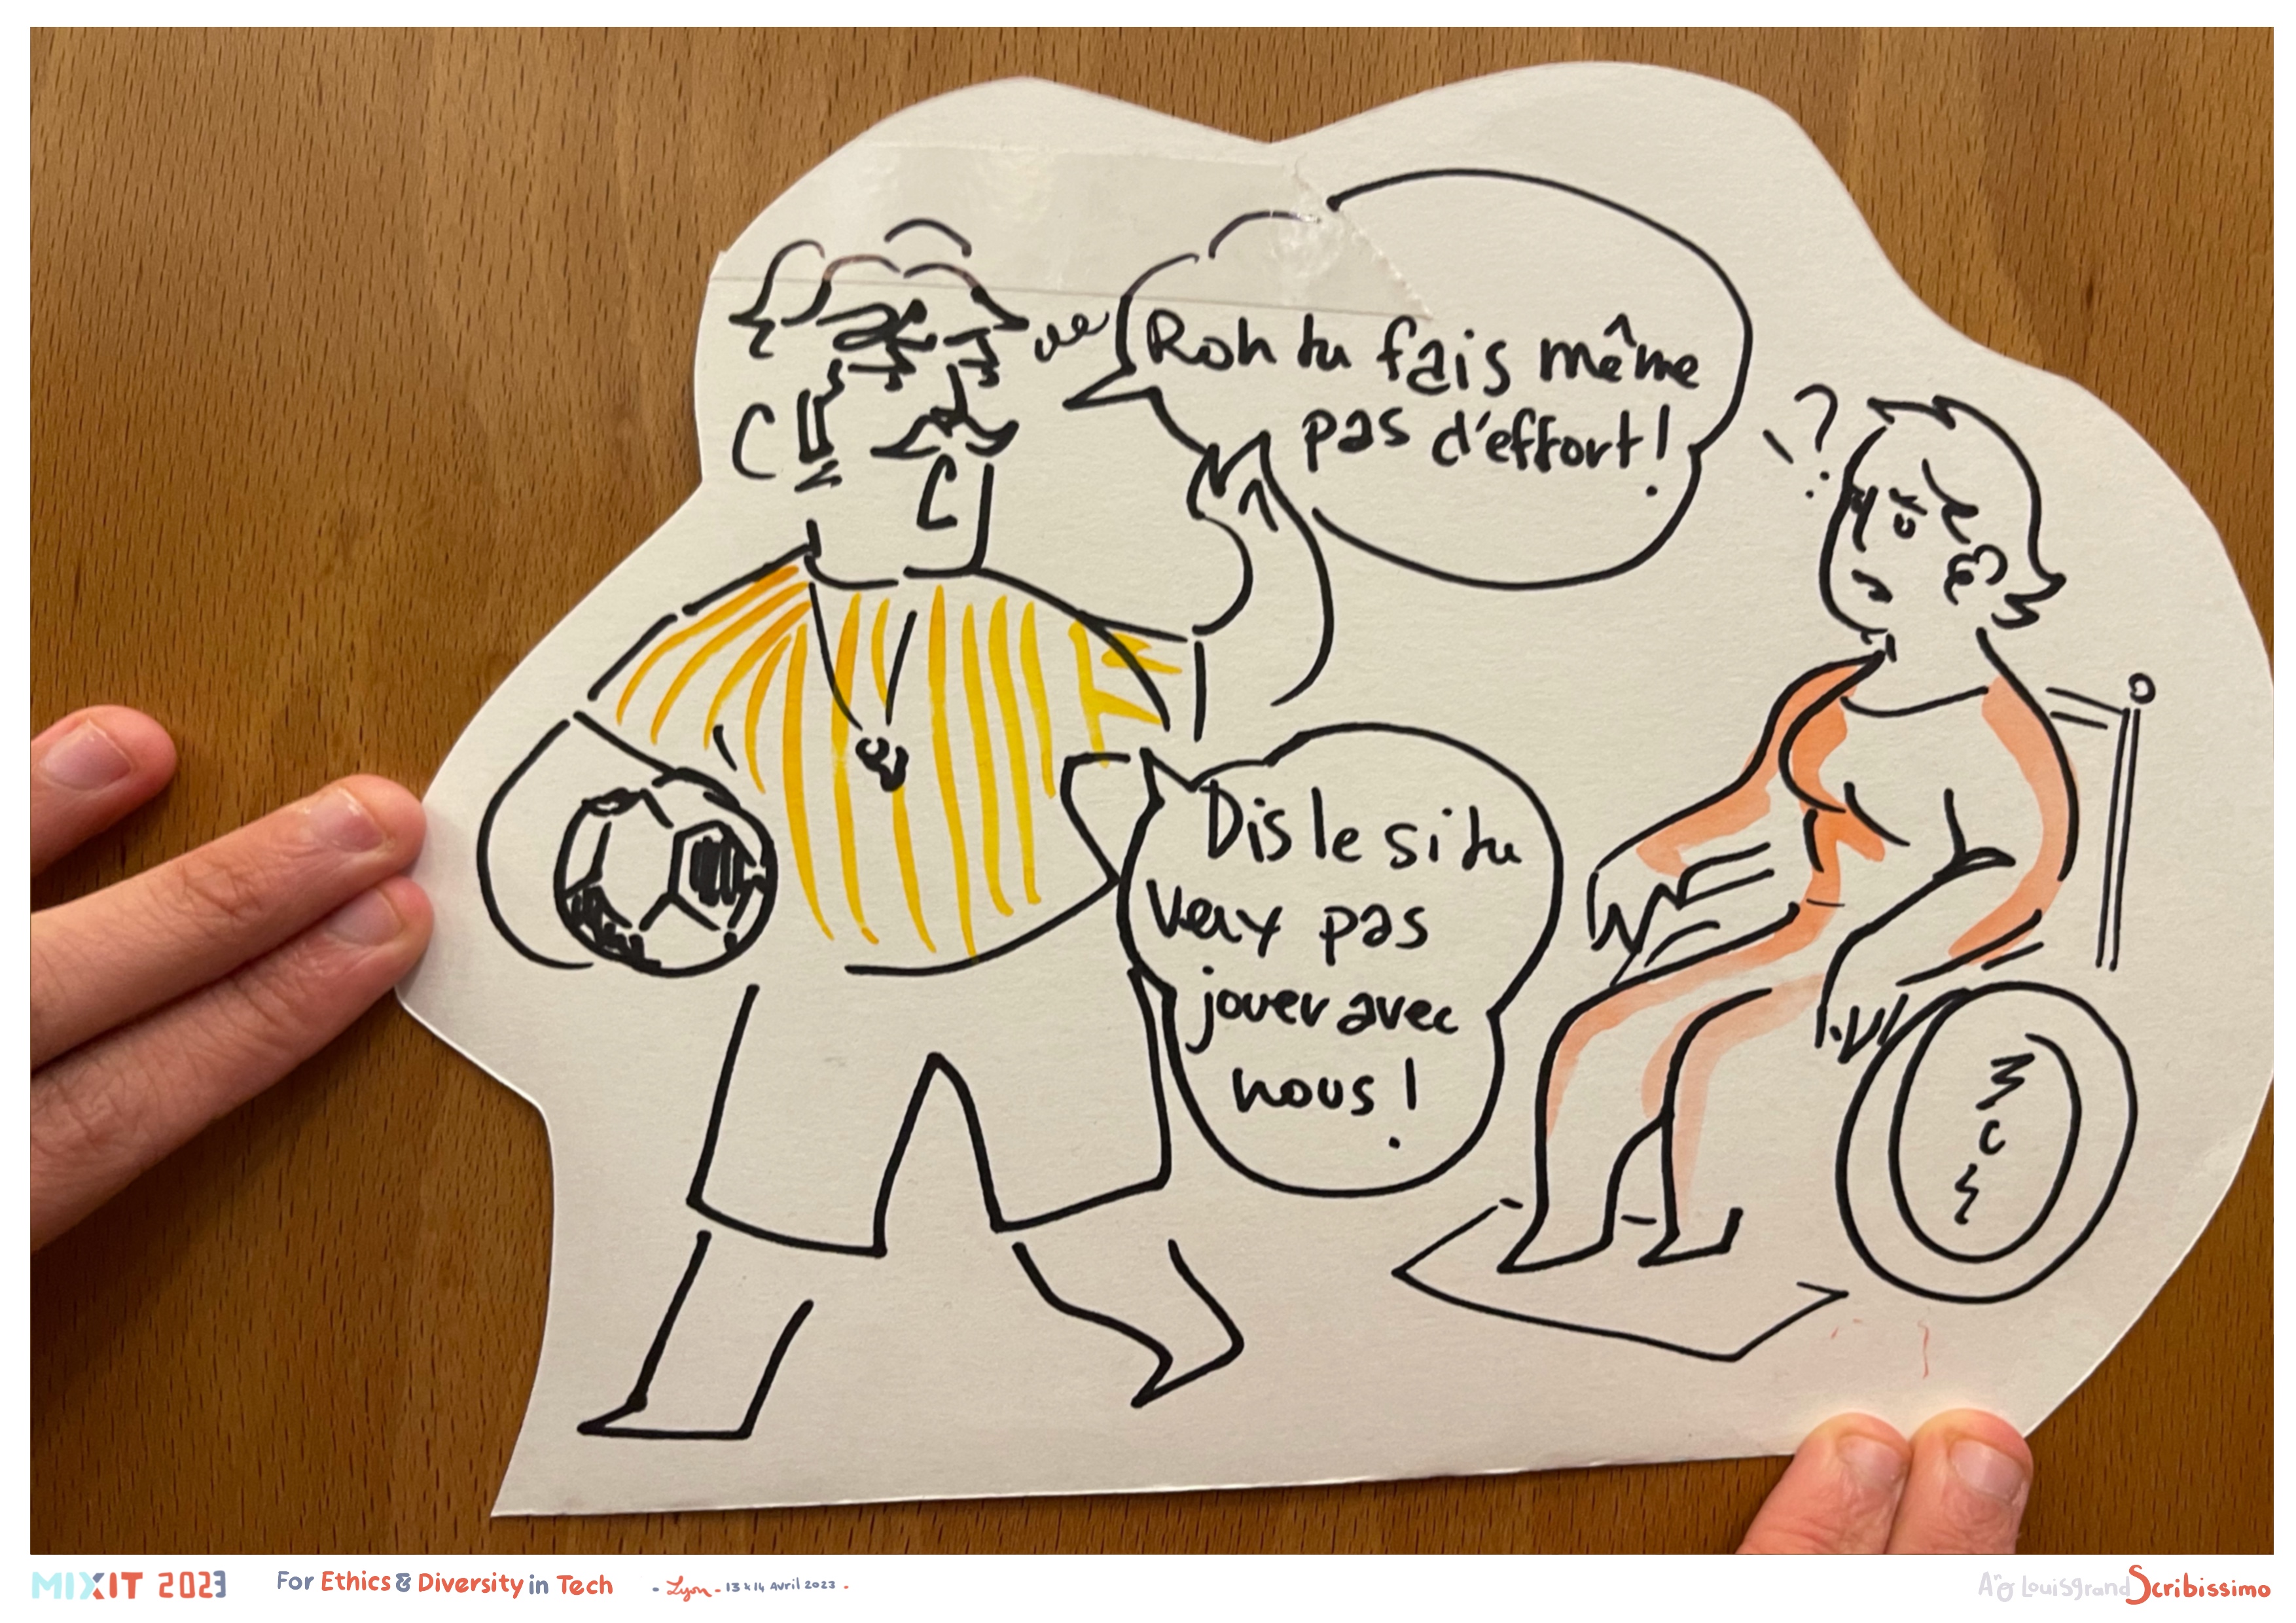 Roh tu fais même
pas d'effort!
?
Dis le si tu
veux pas
jouer avec
nous!
MIXIT 2023 For Ethics & Diversity in Tech - Lyon - 13 & 14 Avril 2023 -
Louisgrand Scribissimo